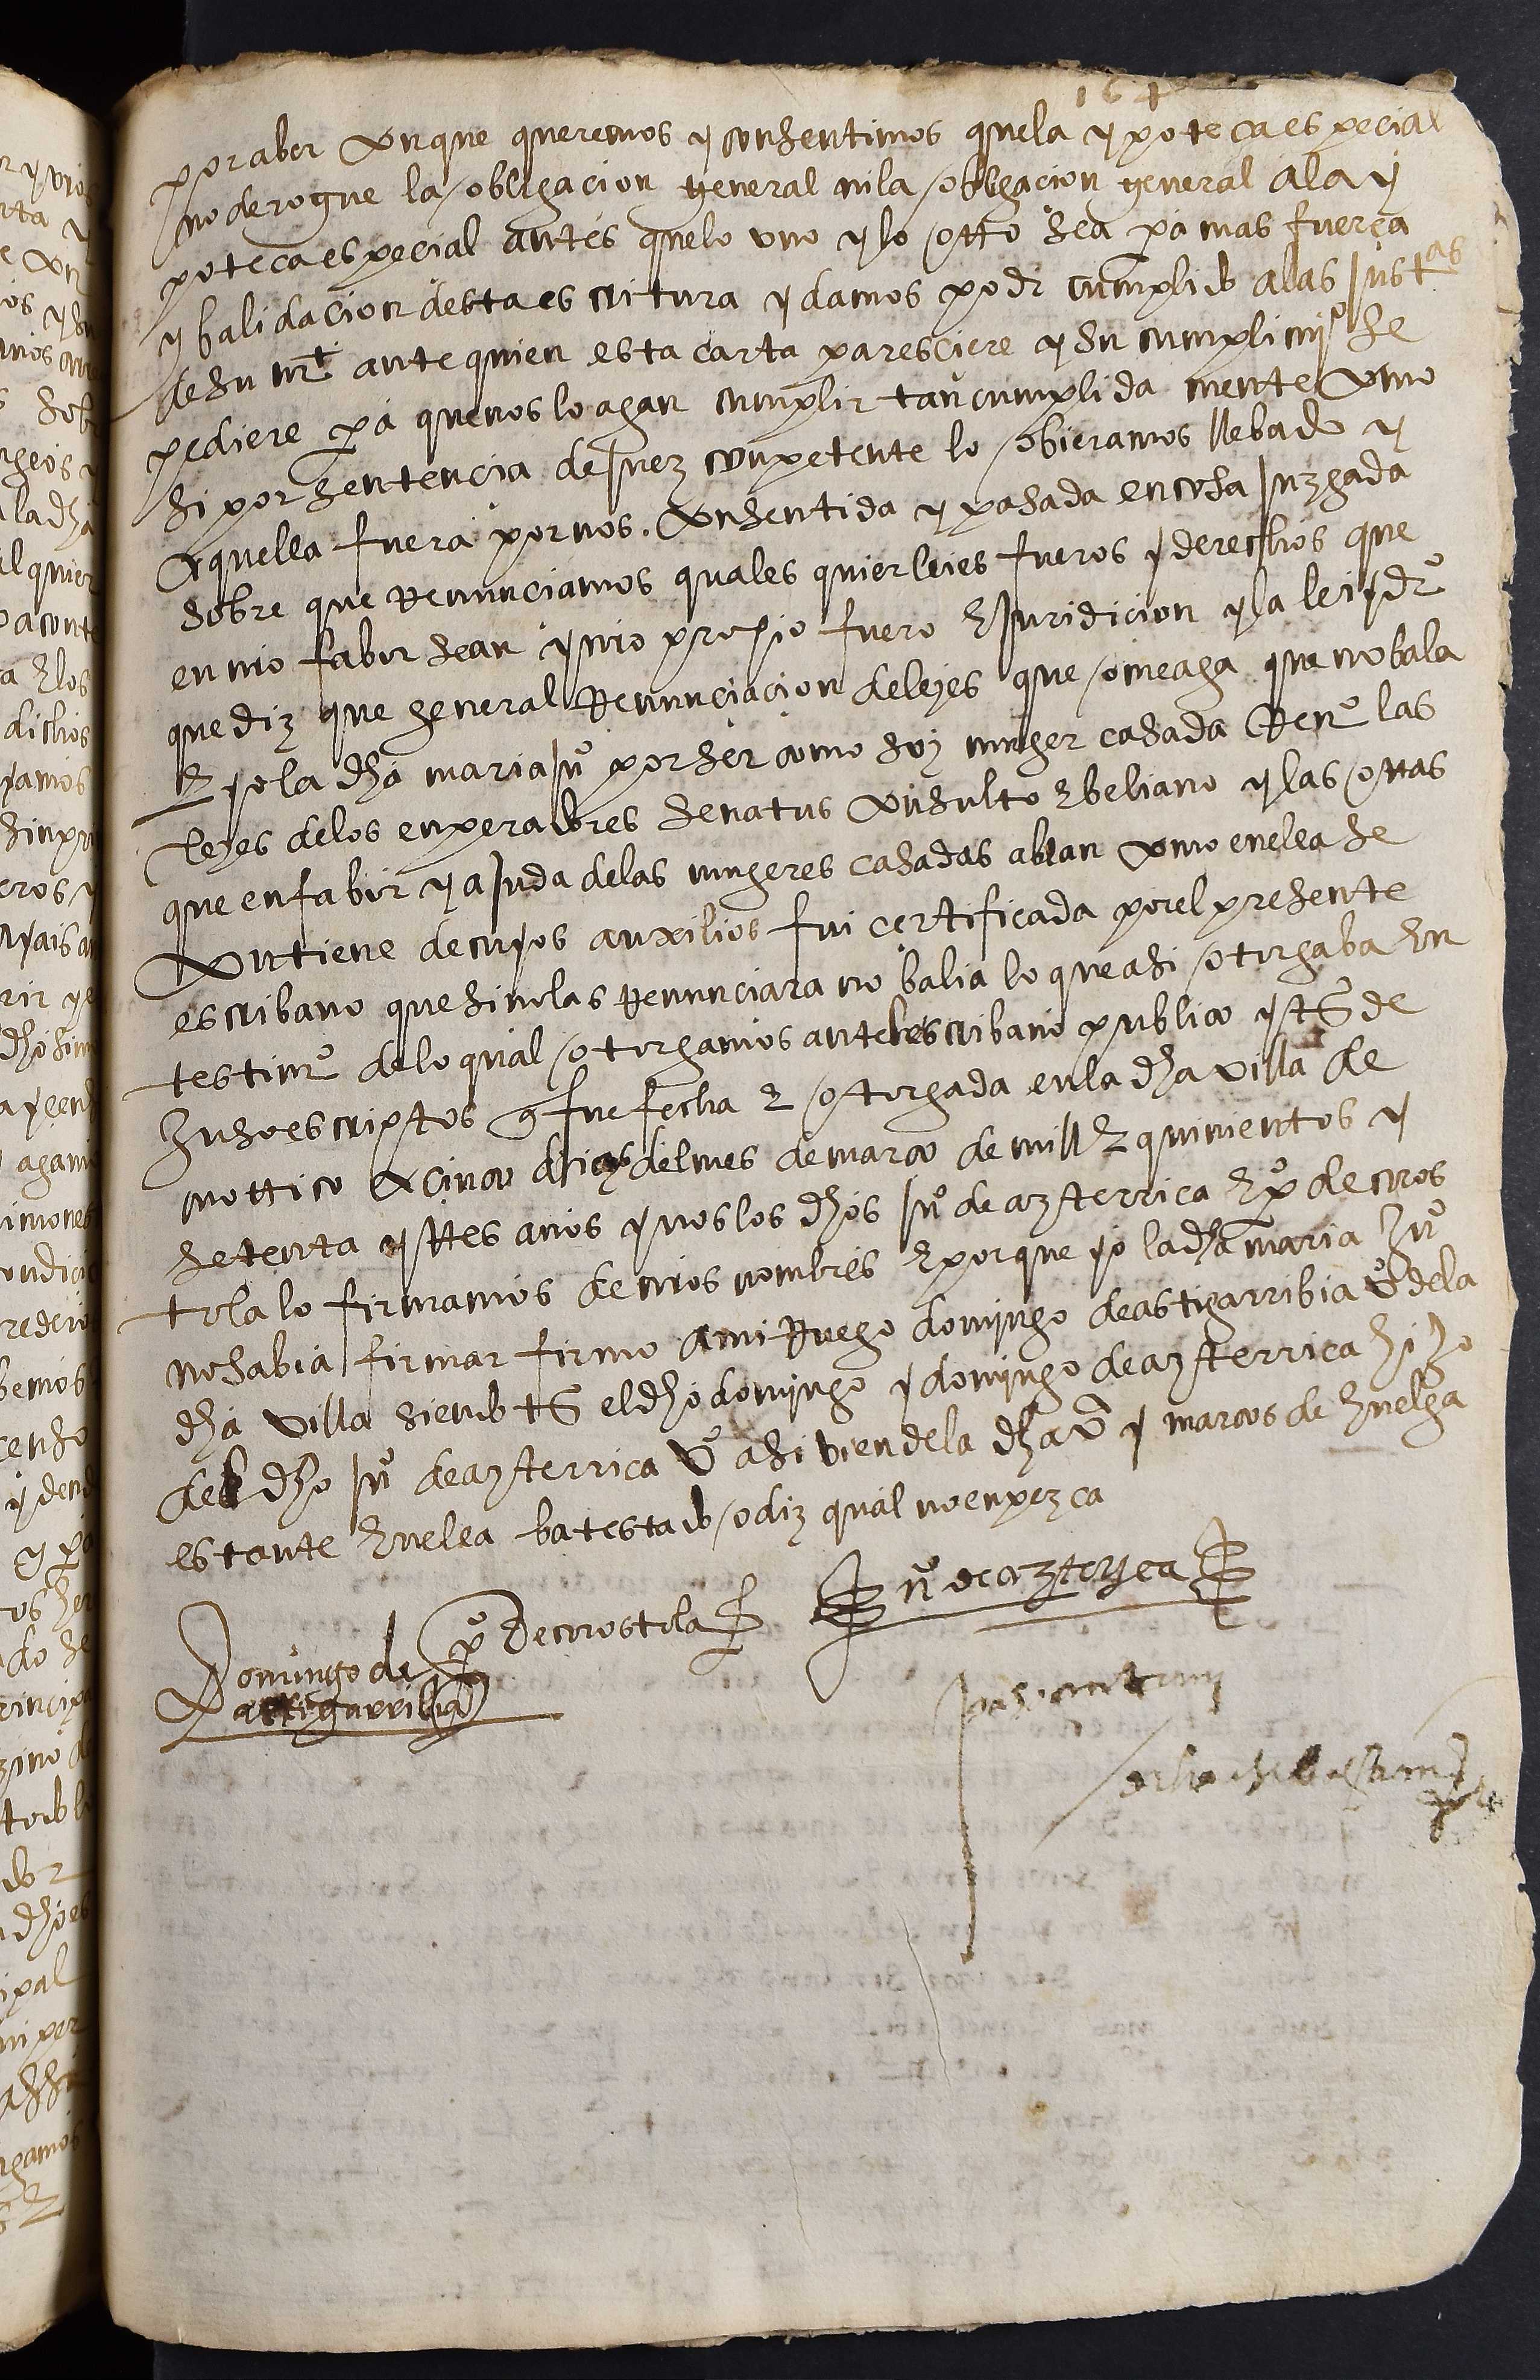 164
por aber con que queremos y consentimos que la ypoteca especial
no derogue la obligacion general ni la obligacion general a la y
poteca especial antes que lo uno y lo otro sea pa mas fuerça
y balidacion desta escritura y damos podr cumplido a las justas
de su mt ante quien esta carta paresciere y su cumplimio se
pediere pa que nos lo agan cumplir tan cumplida mente como
si por sentencia de juez conpetente lo obieramos llebado y
aquella fuera por nos consentida y pasada en cosa juzgada
sobre que Renunciamos quales quier leies fueros y derechos que
en nro fabor sean y nro propio fuero E juridicion y la lei y dro
que diz que general Renunciacion de leyes que ome aga que no bala
E yo la dha maria juo por ser como soy muger casada Reno las
leyes de los enperadores senatus consulto E beliano y las otras
que en fabor y ajuda de las mugeres casadas ablan como en ella se
contiene de cuyos auxilios fui certificada por el presente
escribano que si no las Renunciara no balia lo que asi otorgaba En
testimo de lo qual otorgamos ante el escribano publico y ts de
Juso escriptos q fue fecha E otorgada en la dha villa de
mottrico a cinco dias del mes de março de mill E quinientos y
setenta y tres anos y nos los dhos juo de azterrica E po de cros
tola lo firmamos de nros nombres E porque yo la dha maria Juo
no sabia firmar firmo a mi Ruego domingo de astigarribia vo de la
dha villa siendo ts el dho domingo y domingo de azterrica hijo
del dho juo de azterrica vo asi bien de la dha va y marcos de huelga
estante En ella ba testado o diz qual no enpezca
Juo de azterrica
po De crostola
Domingo de
astigarribia
paso ante my